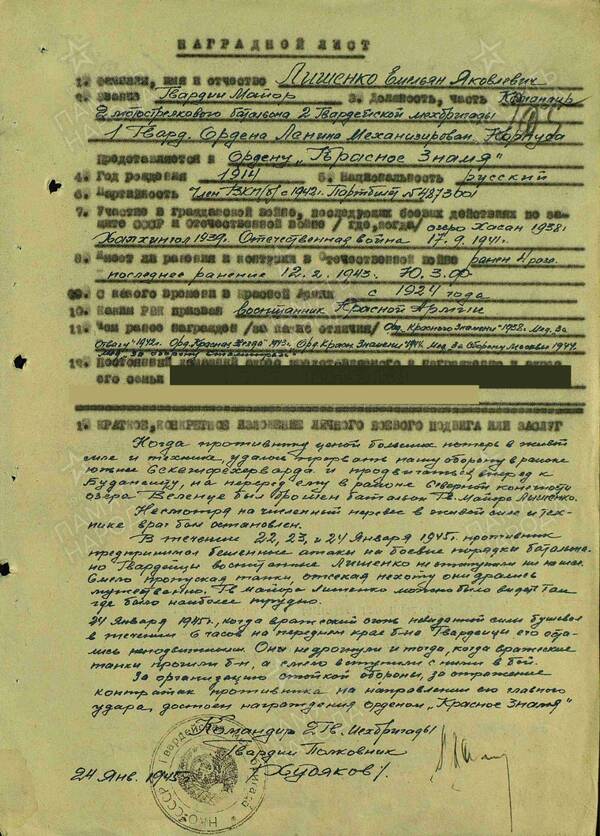 НАГРАДНОЙ ЛИСТ
1. Фамилия, имя и отчество Лищенко Емельян Яковлевич
2. Звание Гвардии Майор 3. Должность, часть Командир
2 мотострелкового батальона 2 Гвардейской мехбригады
1 Гвард. Ордена Ленина Механизирован. Корпуса
Представляется к Ордену „Красное Знамя"
4. Год рождения 1914 5. Национальность русский
6. Партийность Член ВКП(б) с 1942г. Партбилет №4873001
7. Участие в гражданской войне, последующих боевых действиях по за-
щите СССР и отечественной войне /где, когда/ озеро Хасан 1938г
Халхингол 1939г. Отечественная война 17.9.1941г.
8. Имеет ли ранения и контузии в Отечественной войне ранен
последнее ранение 12.2.1943. Ю.З.Фр
9. С какого времени в Красной Армии с 1924 года
10. Каким РВК призван воспитанник Красной Армии
11. Чем ранее награжден /за какие отличия/ Орд. Красного Знамени" 1938г. Мед. За
Отвагу" 1942г. Орд. Красная Звезда" 1943г. Орд. Красн. Знамени" 1944г. Мед. За Оборону Москвы 1944г.
Мед. За оборону Сталинграда"
12. Постоянный домашний адрес представляемого к награждению и адрес
его семьи
1. КРАТКОЕ, КОНКРЕТНОЕ ИЗЛОЖЕНИЕ ЛИЧНОГО БОЕВОГО ПОДВИГА ИЛИ ЗАСЛУГ
Когда противнику ценой больших потерь в живой
силе и технике, удалось прорвать нашу оборону в районе
южнее Секешфехервара и продвигаться вперед к
Будапешту, на перерез ему в районе Северной конечности
озера Веленце был брошен батальон Гв. Майора Лищенко.
Несмотря на численный перевес в живой силе и тех-
нике враг был остановлен.
В течение 22, 23, и 24 Января 1945г. противник
предпринимал бешенные атаки на боевые порядки батальона
но Гвардейцы воспитанные Лищенко не отступили ни на шаг.
Смело пропуская танки, отсекая пехоту они дрались
мужественно. Гв. Майора Лищенко можно было видеть там
где было наиболее трудно.
24 Января 1945г., когда вражеский огонь невиданной силы бушевал
в течении 6 часов на переднем крае б-на Гвардейцы его оста-
лись неподвижными. Они не дрогнули и тогда, когда вражеские
танки прошли б-н, а смело вступили с ними в бой.
За организацию стойкой обороны, за отражение
контратак противника на направлении его главного
удара, достоин награждения орденом „Красное Знамя"
Командир 2 Гв. Мехбригады
Гвардии Полковник
/Худяков/.
24 Янв. 1945г.